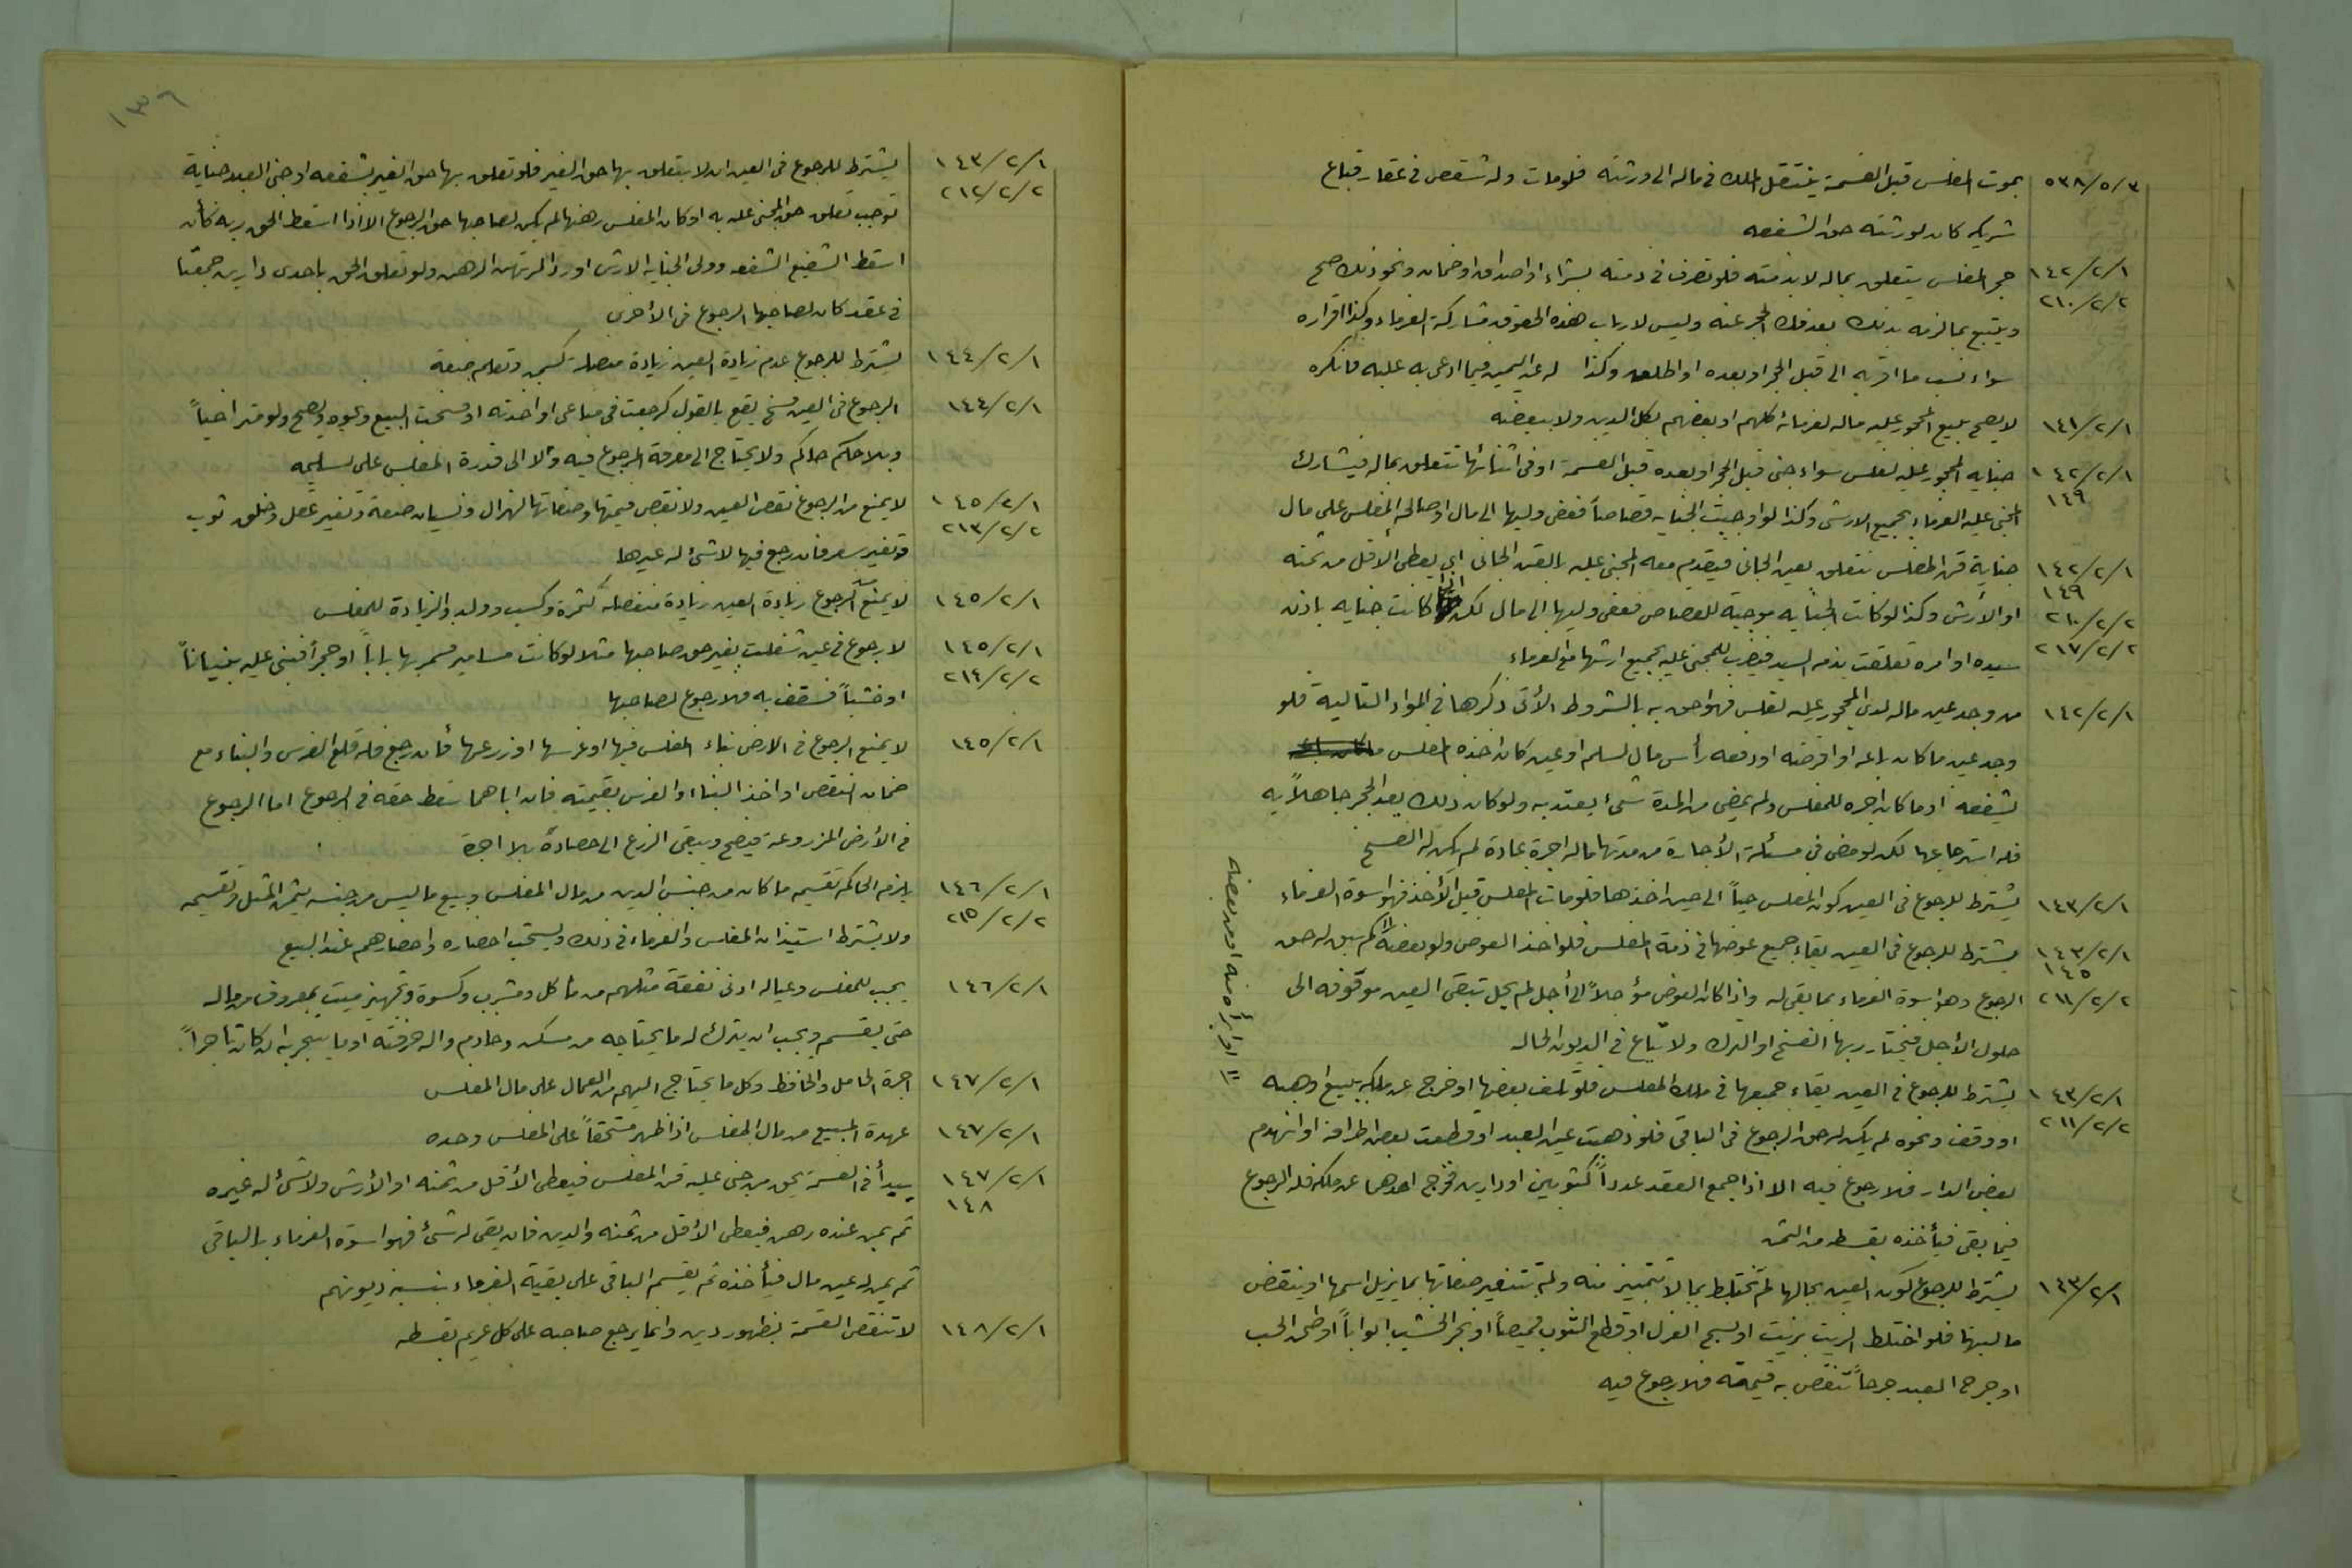 ٥٣٨/٥/٣ بموت المفلس قبل القسمة ينتقل الملك في ماله الى ورثته فلو مات وله شقص في عقار فباع
شريكه كان لورثته حق الشفعه
١٤٢/٢/١ حجر المفلس يتعلق بماله لا بذمته فلو تصرف في ذمته بشراء او اصداق او ضمان ونحو ذلك صح
٢١٠/٢/٢ ويتبع بما لزمه بذلك بعد فك الحجر عنه وليس لارباب هذه الحقوق مشاركة الغرماء وكذا اقراره
سواء نسب ما اقر به الى قبل الحجر او بعده او اطلق وكذا له عند اليمين فيما ادعى به عليه فانكره
١٤١/٢/١ لا يصح بيع المحجور عليه ماله لغرمائه كلهم او بعضهم بكل الدين ولا ببعضه
١٤٢/٢/١ جناية المحجور عليه لفلس سواء جنى قبل الحجر او بعده قبل القسمة او في اثنائها تتعلق بماله فيشارك
١٤٩ المجني عليه الغرماء بجميع الارش وكذا لو اوجبت الجنايه قصاصاً فعفى وليها الى مال او صالحه المفلس على مال
١٤٢/٢/١ جناية قن المفلس تتعلق بعين الجاني فيقدم معه المجني عليه بالقن الجاني اي يعطى الأقل من ثمنه
١٤٩
٢١٠/٢/٢ او الأرش وكذا لو كانت الجنايه موجبة للقصاص فعفى وليها الى مال لكن اذا كانت جنايه باذن
٢١٧/٢/٢ سيده او امره تعلقت بذمه السيد فيضرب للمجني عليه بجميع ارشها مع الغرماء
١٤٢/٢/١ من وجد عين ماله لدى المحجور عليه لفلس فهو احق به بالشروط الأتي ذكرها في المواد التالية فلو
وجد عين ما كان باعه او اقرضه او دفعه رأس مال لسلم او عين كان اخذه المفلس
بشفعه او ما كان اجره للمفلس ولم يمضي من المدة شئ يعتد به ولو كان ذلك بعد الحجر جاهلاً به
فله استرجاعها لكن لو مضى في مسئلة الأجارة من مدتها ماله اجرة عادة لم يكن له الفسخ
١٤٣/٢/١ يشترط للرجوع في العين كون المفلس حياً الى حين اخذها فلو مات المفلس قبل الأخذ فهو اسوة الغرماء
١٤٣/٢/١ يشترط للرجوع في العين بقاء جميع عوضها في ذمة المفلس فلو اخذ العوض ولو بعضه ⸗ لم يبق له حق
١٤٥
٢١١/٢/٢ الرجوع وهو اسوة الغرماء بما بقي له واذا كان العوض مؤجلاً الى أجل لم يحل تبقى العين موقوفه الى
حلول الأجل فيختار ربها الفسخ او الترك ولا تباع في الديون الحاله
⸗ او ابرأه منه او من بعضه
١٤٣/٢/١ يشترط للرجوع في العين بقاء جميعها في ملك المفلس فلو تلف بعضها او خرج عن ملكه ببيع او هبه
٢١١/٢/٢ او وقف ونحوه لم يكن له حق الرجوع في الباقي فلو ذهبت عين العبد او قطعت بعض اطرافه او انهدم
بعض الدار فلا رجوع فيه الا اذا جمع العقد عدداً كثوبين او دارين فخرج احدهما عن ملكه فله الرجوع
فيما بقي فيأخذه بقسطه من الثمن
١٤٣/٢/١ يشترط للرجوع كون العين بحالها لم تختلط بما لا تتميز منه ولم تتغير صفاتها بما يزيل اسمها او ينقض
ماليتها فلو اختلط الزيت بزيت او نسج الغزل او قطع الثوب قميصاً او نجر الخشب ابواباً او طحن الحب
او جرح العبد جرحاً تنقص به قيمته فلا رجوع فيه
١٣٦
١٤٣/٢/١ يشترط للرجوع في العين ان لا يتعلق بها حق الغير فلو تعلق بها حق الغير بشفعه او جنى العبد جناية
٢١٢/٢/٢ توجب تعلق حق المجني عليه به او كان المفلس رهنها لم يكن لصاحبها حق الرجوع الا اذا اسقط الحق ربه كأن
اسقط الشفيع الشفعه وولي الجنايه الارش او رد المرتهن الرهن ولو تعلق الحق باحدى دارين جمعتا
في عقد كان لصاحبها الرجوع في الأخرى
١٤٤/٢/١ يشترط للرجوع عدم زيادة العين زيادة متصلة كسمن وتعلم صنعة
١٤٤/٢/١ الرجوع في العين فسخ يقع بالقول كرجعت في متاعي او اخذته او فسخت البيع ونحوه ويصح ولو متراخياً
وبلا حكم حاكم ولا يحتاج الى معرفة المرجوع فيه ولا الى قدرة المفلس على تسليمه
١٤٥/٢/١ لا يمنع من الرجوع نقص العين ولا نقص قيمتها وصفاتها لهزال ونسيان صنعة وتغير عقل وخلق ثوب
٢١٣/٢/٢ وتغير سعر فان رجع فيها لا شئ له غيرها
١٤٥/٢/١ لا يمنع الرجوع زيادة العين زيادة منفصله كثمرة وكسب وولد والزيادة للمفلس
١٤٥/٢/١ لا رجوع في عين شغلت بغير حق صاحبها مثلا لو كانت مسامير فسمر بها باباً او حجراً فبنى عليه بنياناً
٢١٤/٢/٢ او خشباً فسقف به فلا رجوع لصاحبها
١٤٥/٢/١ لا يمنع الرجوع في الارض بناء المفلس فيها او غرسها او زرعها فأن رجع فله قلع الغرس والبناء مع
ضمان النقص او اخذ البناء او الغرس بقيمته فان اباهما سقط حقه في الرجوع اما الرجوع
في الأرض المزروعة فيصح ويبقى الزرع الى حصاده بلا اجرة
١٤٦/٢/١ يلزم الحاكم تقسيم ما كان من جنس الدين من مال المفلس وبيع ما ليس من جنسه بثمن المثل وتقسيمه
٢١٥/٢/٢ ولا يشترط استيذان المفلس والغرماء في ذلك ويستحب احضاره واحضارهم عند البيع
١٤٦/٢/١ يجب للمفلس وعياله ادنى نفقة مثلهم من مأكل ومشرب وكسوة وتجهيز ميت بمعروف من ماله
حتى يقسم ويجب ان يترك له ما يحتاجه من مسكن وخادم واله حرفته او ما يتجر به ان كان تاجراً
١٤٧/٢/١ اجرة الحامل والحافظ وكل ما يحتاج اليهم من العمال على مال المفلس
١٤٧/٢/١ عهدة المبيع من مال المفلس اذا ظهر مستحقاً على المفلس وحده
١٤٧/٢/١ يبدأ في القسمة بحق من جنى عليه قن المفلس فيعطى الأقل من ثمنه او الأرش ولا شئ له غيره
١٤٨
ثم بمن عنده رهن فيعطى الأقل من ثمنه والدين فان بقي له شئ فهو اسوة الغرماء بالباقي
ثم بمن له عين مال فيأخذه ثم يقسم الباقي على بقية الغرماء بنسبة ديونهم
١٤٨/٢/١ لا تنقض القسمة بظهور دين وانما يرجع صاحبه على كل غريم بقسطه